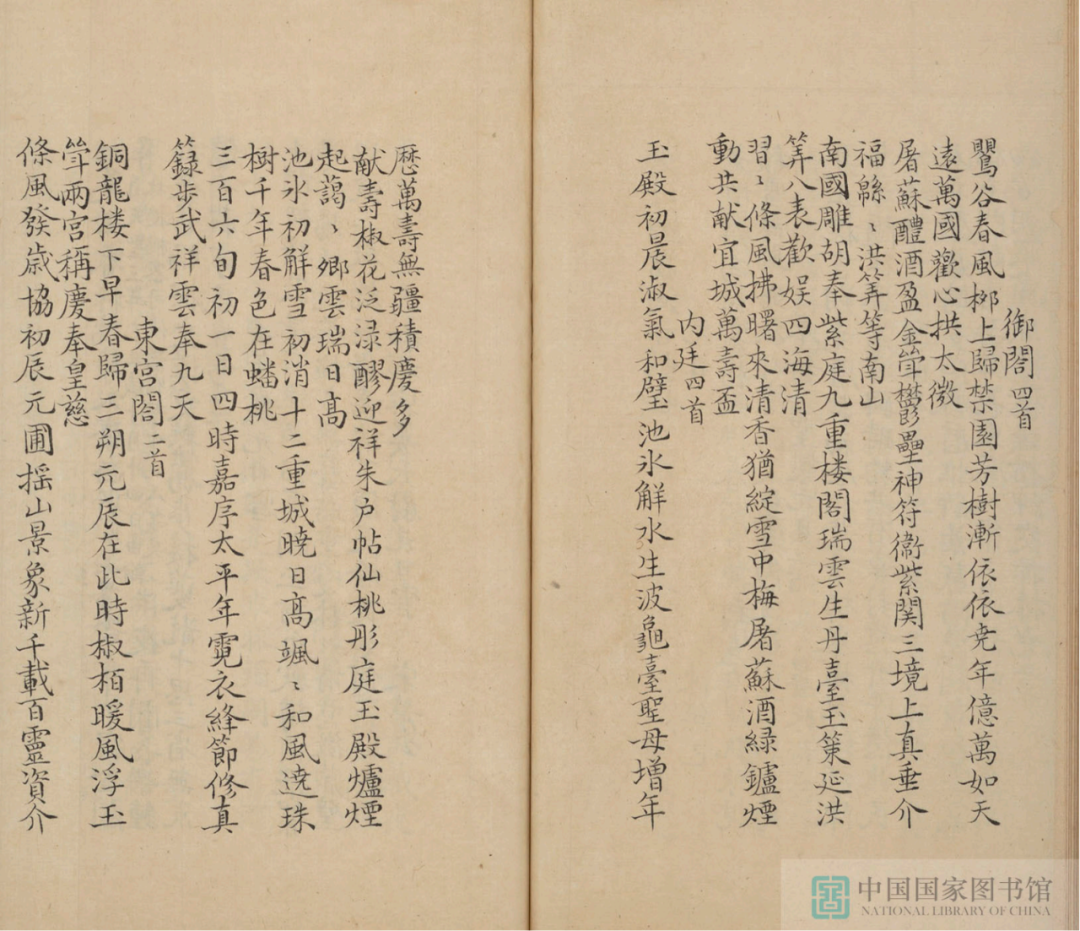 御閣四首
鸎谷春風栁上歸禁園芳樹漸依依尭年億萬如天
遠萬國歡心拱太微
屠蘇醴酒盈金斝欎壘神符衞紫関三境上真垂介
福緜〻洪筭等南山
南國雕胡奉紫庭九重楼閣瑞雲生丹臺玉策延洪
筭八表歡娱四海清
習〻條風拂曙來清香猶綻雪中梅屠蘇酒緑鑪煙
動共献宜城萬壽盃
内廷四首
玉殿初晨淑氣和璧池氷解水生波龜臺聖母増年
厯萬壽無疆積慶多
献壽椒花泛渌醪迎祥朱户帖仙桃彤庭玉殿爐煙
起藹〻郷雲瑞日髙
池氷初解雪初消十二重城曉日髙颯〻和風遶珠
樹千年春色在蟠桃
三百六旬初一日四時嘉序太平年霓衣絳節修真
籙步武祥雲奉九天
東宮閣二首
銅龍楼下早春歸三朔元辰在此時椒栢暖風浮玉
斝兩宮稱慶奉皇慈
條風發歳協初辰元圃揺山景象新千載百靈資介
中国国家图书馆
NATIONAL LIBRARY OF CHINA